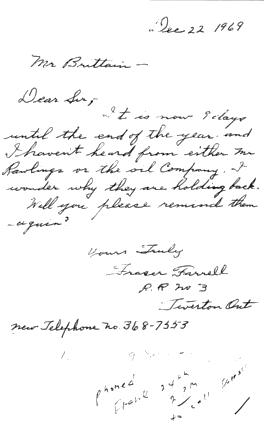 Dec 22 1969
Mr Brittain -
Dear Sir,-
It is now 9 days
until the end of the year. and
I haven't heard from either Mr
Rawlings or the oil Company. I
wonder why they are holding back.
Will you please remind them
-again?
Yours Truly
Fraser Farrell
R.R No 3
Tiverton Ont
new Telephone No. 368-7553
phoned
Frank 24th
to call